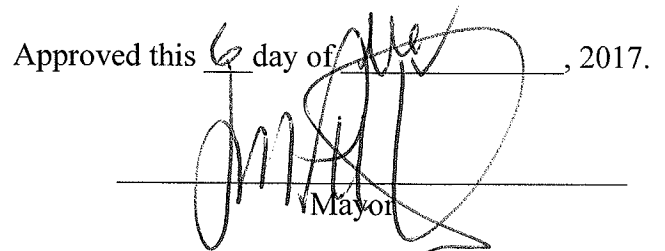 Approved this 6 day of , 2017.
Mayor